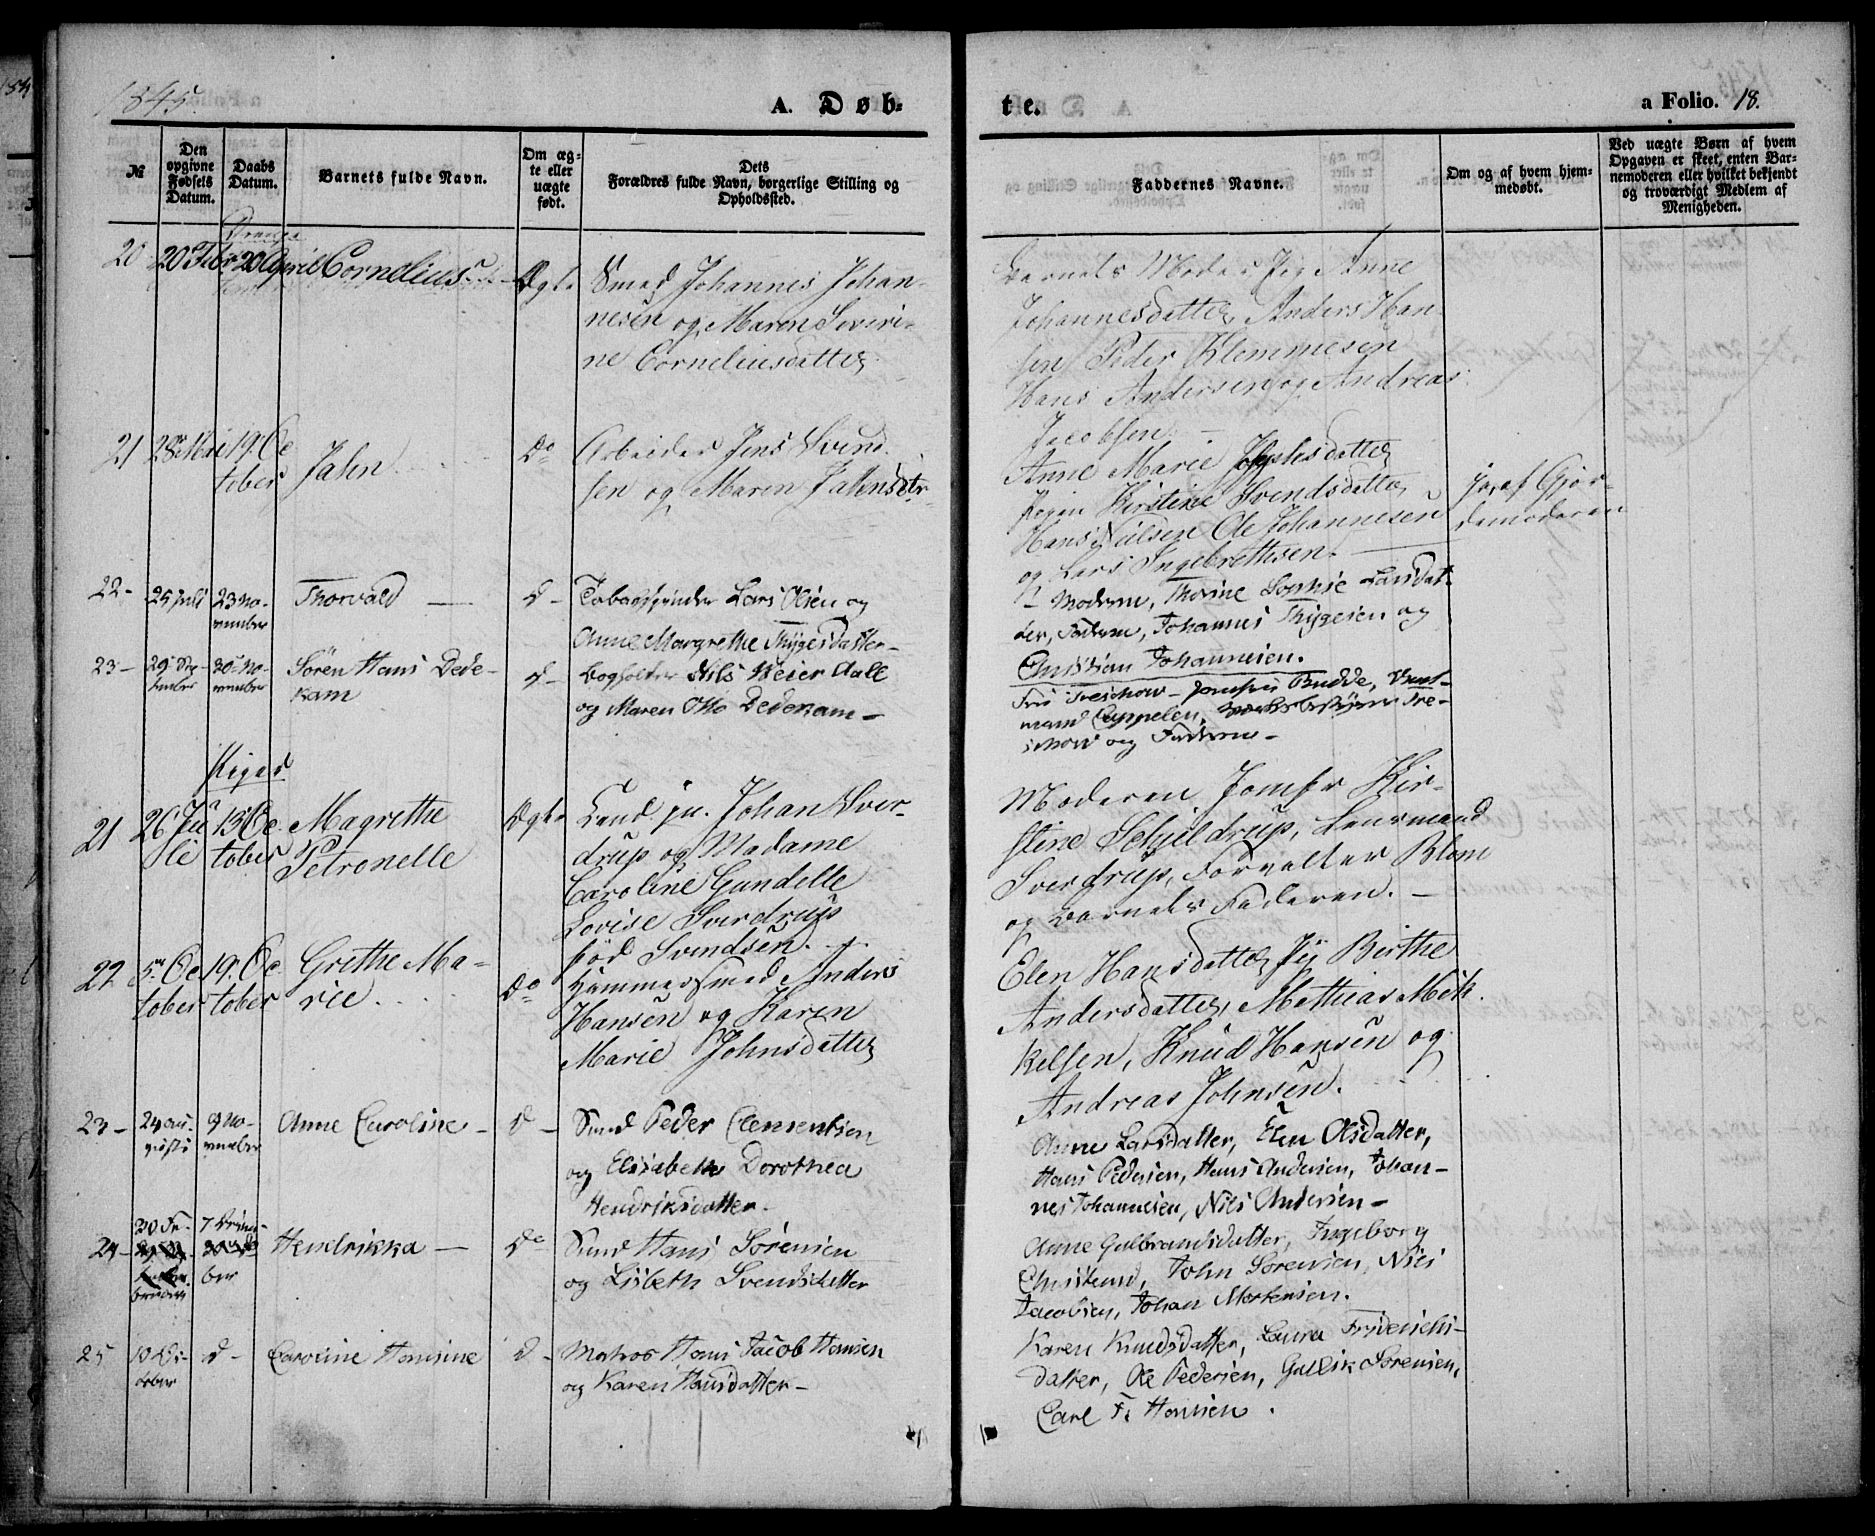 1845.
A. Døb-
te.
a Folio. 18.
№
Den opgivne Fødsels Datum.
Daabs Datum.
Barnets fulde Navn.
Om ægte eller uægte født.
Dets
Forældres fulde Navn, borgerlige Stilling og
Opholdssted.
Faddernes Navne.
Om og af hvem hjemmedøbt.
Ved uægte Børn af hvem
Opgaven er skeet, enten Bar-
nemoderen eller hvilket bekjendt
og troværdigt Medlem af
Menigheden.
Drenge
20 20 Febr 20 April Cornelius Ægte Smed Johannes Johan-
nesen og Maren Severi-
ne Corneliusdatter
Barnets Moder Pig Anne
Johannesdatter Anders Han-
sen Peder Klemmesen
Hans Andersen og Andreas
Jacobsen
21 28 Mai 19. Oc
tober Jahn Do Arbeider Jens Svend
sen og Maren Jahnsdtr
Anne Marie Josephsdatter
Pigen Kirstine Svendsdatter
Hans Nielsen Ole Johannesen
og Lars Ingebrethsen.
ja, af Gjor-
demoderen
22- 25 Juli 23 No-
vember Thorvald — d- Tobaksspinder Lars Olsen og
Anne Margrethe Thygesdatter-
Moderen, Thorine Sophie Larsdat-
ter, Faderen, Johannes Thygesen og
Christian Johannesen.
23- 29 Sep-
tember 30 No-
vember Søren Hans Dede-
kam d- Bogholder Nils Weier Aall
og Maren Otto Dedekam-
Fru Treschow- Jomfru Budde,
mand Cappelen, Tre-
schow og Faderen-
Piger
21 26 Ju
li 13 Oc
tober Magrethe
Petronelle Ægte Cand. ju. Johan Sver-
drup og Madame
Caroline Gundelle
Lovise Sverdrup
fød Svendsen.
Moderen, Jomfr Kir-
stine Schjeldrup, Lensmand
Sverdrup, Forvalter Blom
og Barnets Faderen. —
22 5 Oc
tober 19. Oc
tober Grethe Ma-
rie Do Hammersmed Anders
Hansen og Karen
Marie Johnsdatter
Elen Hansdatter Pig Birthe
Andersdatter, Mathias Mik
kelsen, Knud Hansen og
Andreas Johnsen.
23- 24 au-
gusti 9 No-
vember Anne Caroline- d- Smed Peder Clemensen
og Elisabeth Dorothea
Hendriksdatter-
Anne Larsdatter, Elen Olsdatter,
Hans Pedersen, Hans Andersen, Johan-
nes Johannesen, Nils Andersen-
24- 20 Fe-
bruari 7 Decem-
ber Hendrikka — do Smed Hans Sørensen
og Lisbeth Svendsdatter
Anne Gulbrandsdatter, Ingeborg
John Sørensen, Nils
Jacobsen, Johan Mortensen.
25 10 Oc-
tober d- Caroline Hansine d- Matros Hans Jacob Hansen
og Karen Hansdatter-
Karen Knudsdatter, Laura Friderichs-
datter, Ole Pedersen, Gullik Sørensen,
Carl F. Hansen.